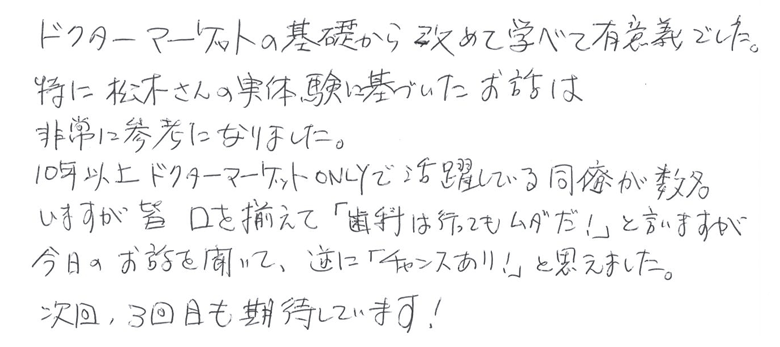 ドクターマーケットの基礎から改めて学べて有意義でした。
特に松木さんの実体験に基づいたお話は
非常に参考になりました。
10年以上ドクターマーケットONLYで活躍している同僚が数名
いますが皆口を揃えて「歯科は行ってもムダだ！」と言いますが
今日のお話を聞いて、逆に「チャンスあり！」と思えました。
次回、3回目も期待しています！